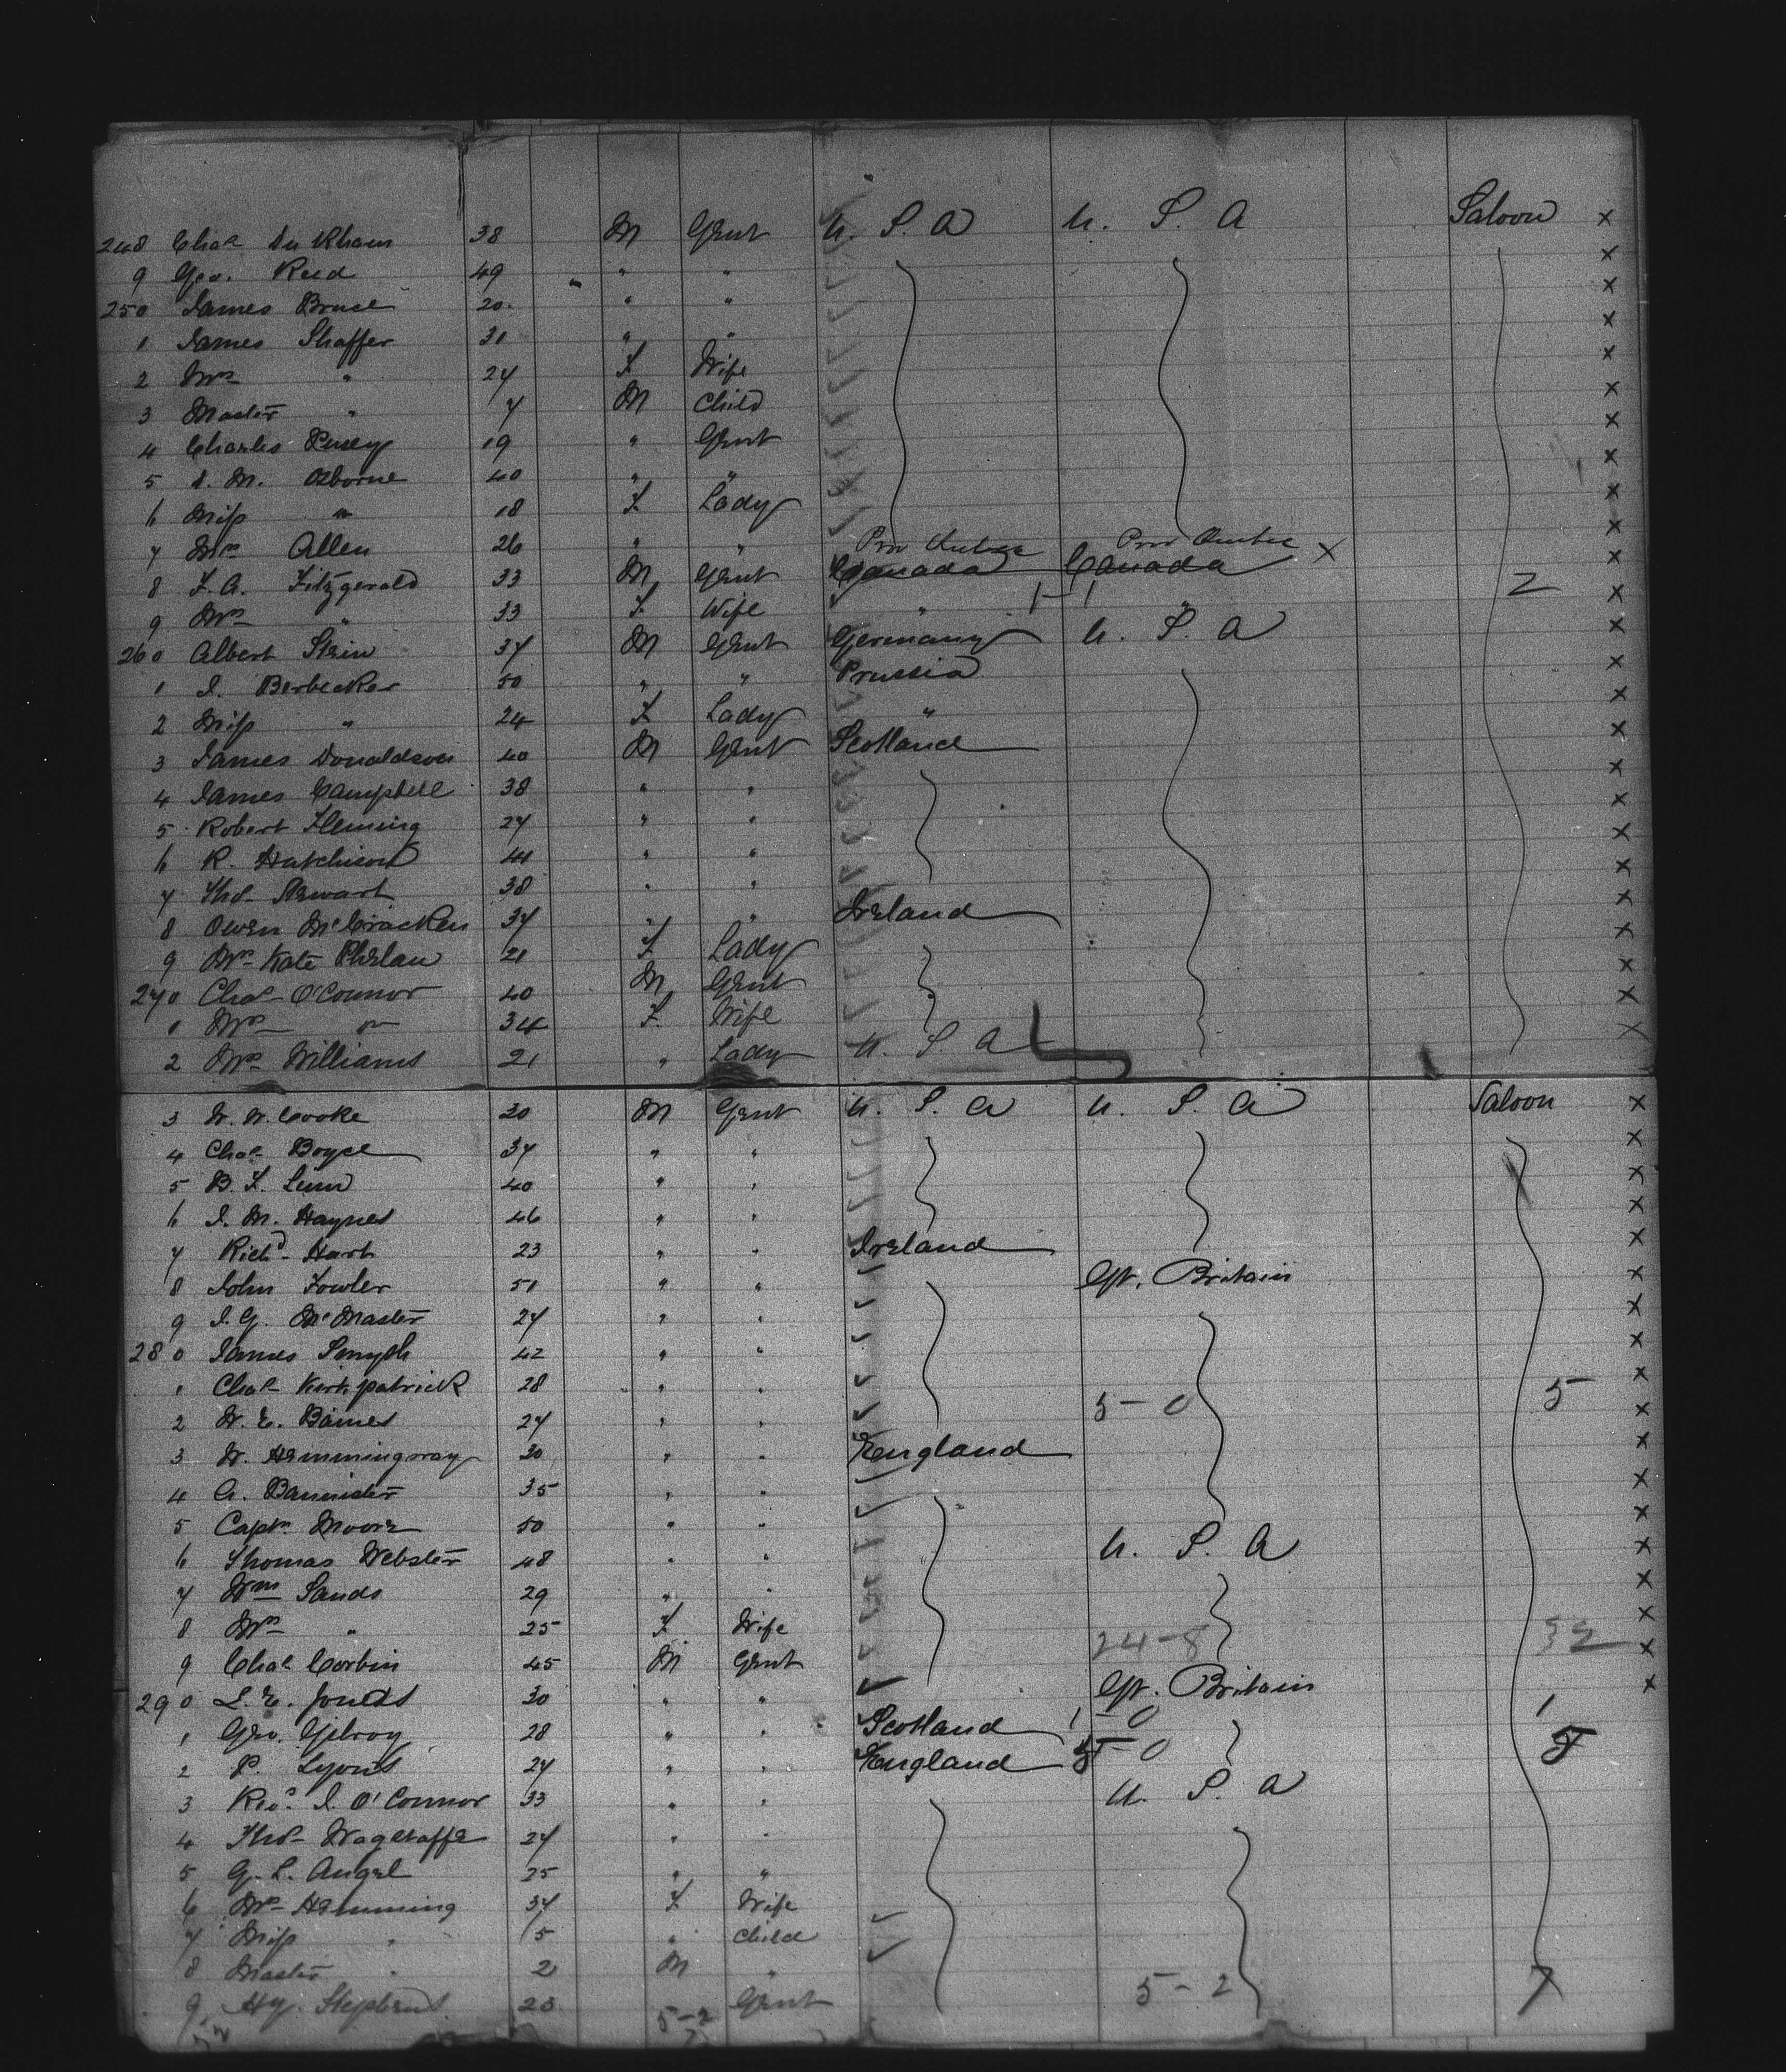 248 Chas Durkham 38 M Gent U. S. A U. S. A Saloon x
9 Geo. Reed 49 " " x
250 James Bruce 20 " " x
1 James Shaffer 31 " " x
2 Mrs " 24 F Wife x
3 Master " 7 M Child x
4 Charles 19 " Gent x
5 D. M. Osborne 40 " " x
6 Miss " 18 F Lady x
7 Mrs Allen 26 " " Prov Quebec Prov Quebec x
8 F. A. Fitzgerald 33 M Gent Canada Canada 2 x
9 Mrs " 33 F Wife " 1-1 " x
260 Albert Stein 37 M Gent Germany U. S. A x
1 J. Berbecker 50 " " Prussia x
2 Miss " 24 F Lady " x
3 James Donaldson 40 M Gent Scotland x
4 James Campbell 38 " " x
5 Robert Fleming 27 " " x
6 R. Hutchison 41 " " x
7 Thos Stewart 38 " " x
8 Owen McCracken 37 " " Ireland x
9 Mrs Kate Phelan 21 F Lady x
270 Chas O'Connor 40 M Gent x
1 Mrs " 34 F. Wife x
2 Mrs Williams 21 " Lady U. S. A x
3 W. W. Cooke 30 M Gent U. S. A U. S. A Saloon x
4 Chas Boyce 37 " " x
5 B. F. Lunn 40 " " x
6 J. M. Haynes 46 " " x
7 Richd Hart 23 " " Ireland x
8 John Fowler 51 " " Gt. Britain x
9 J. G. McMaster 27 " " x
280 James Smyth 42 " " x
1 Chas Kirkpatrick 28 " " 5 x
2 W. E. Baines 27 " " 5-0 x
3 W. Hemmingway 30 " " England x
4 A. Bannister 35 " " x
5 Captn Moore 50 " " x
6 Thomas Webster 48 " " U. S. A x
7 Wm Sands 29 " " x
8 Mrs " 25 F Wife 24-8 32 x
9 Chas Corbin 45 M Gent x
290 L. E. Jones 30 " " Gt. Britain x
1 Geo. Gilroy 28 " " Scotland 1-0 1
2 P. Lyons 27 " " England 5-0 5
3 Revd. J. O'Connor 33 " " U. S. A
4 Thos Wagstaffe 27 " "
5 G. L. Angel 25 " "
6 Mrs Hemming 37 F Wife
7 Miss " 5 " Child
8 Master " 2 M " 5-2 7
9 Hy. Stephens 23 5-2 Gent